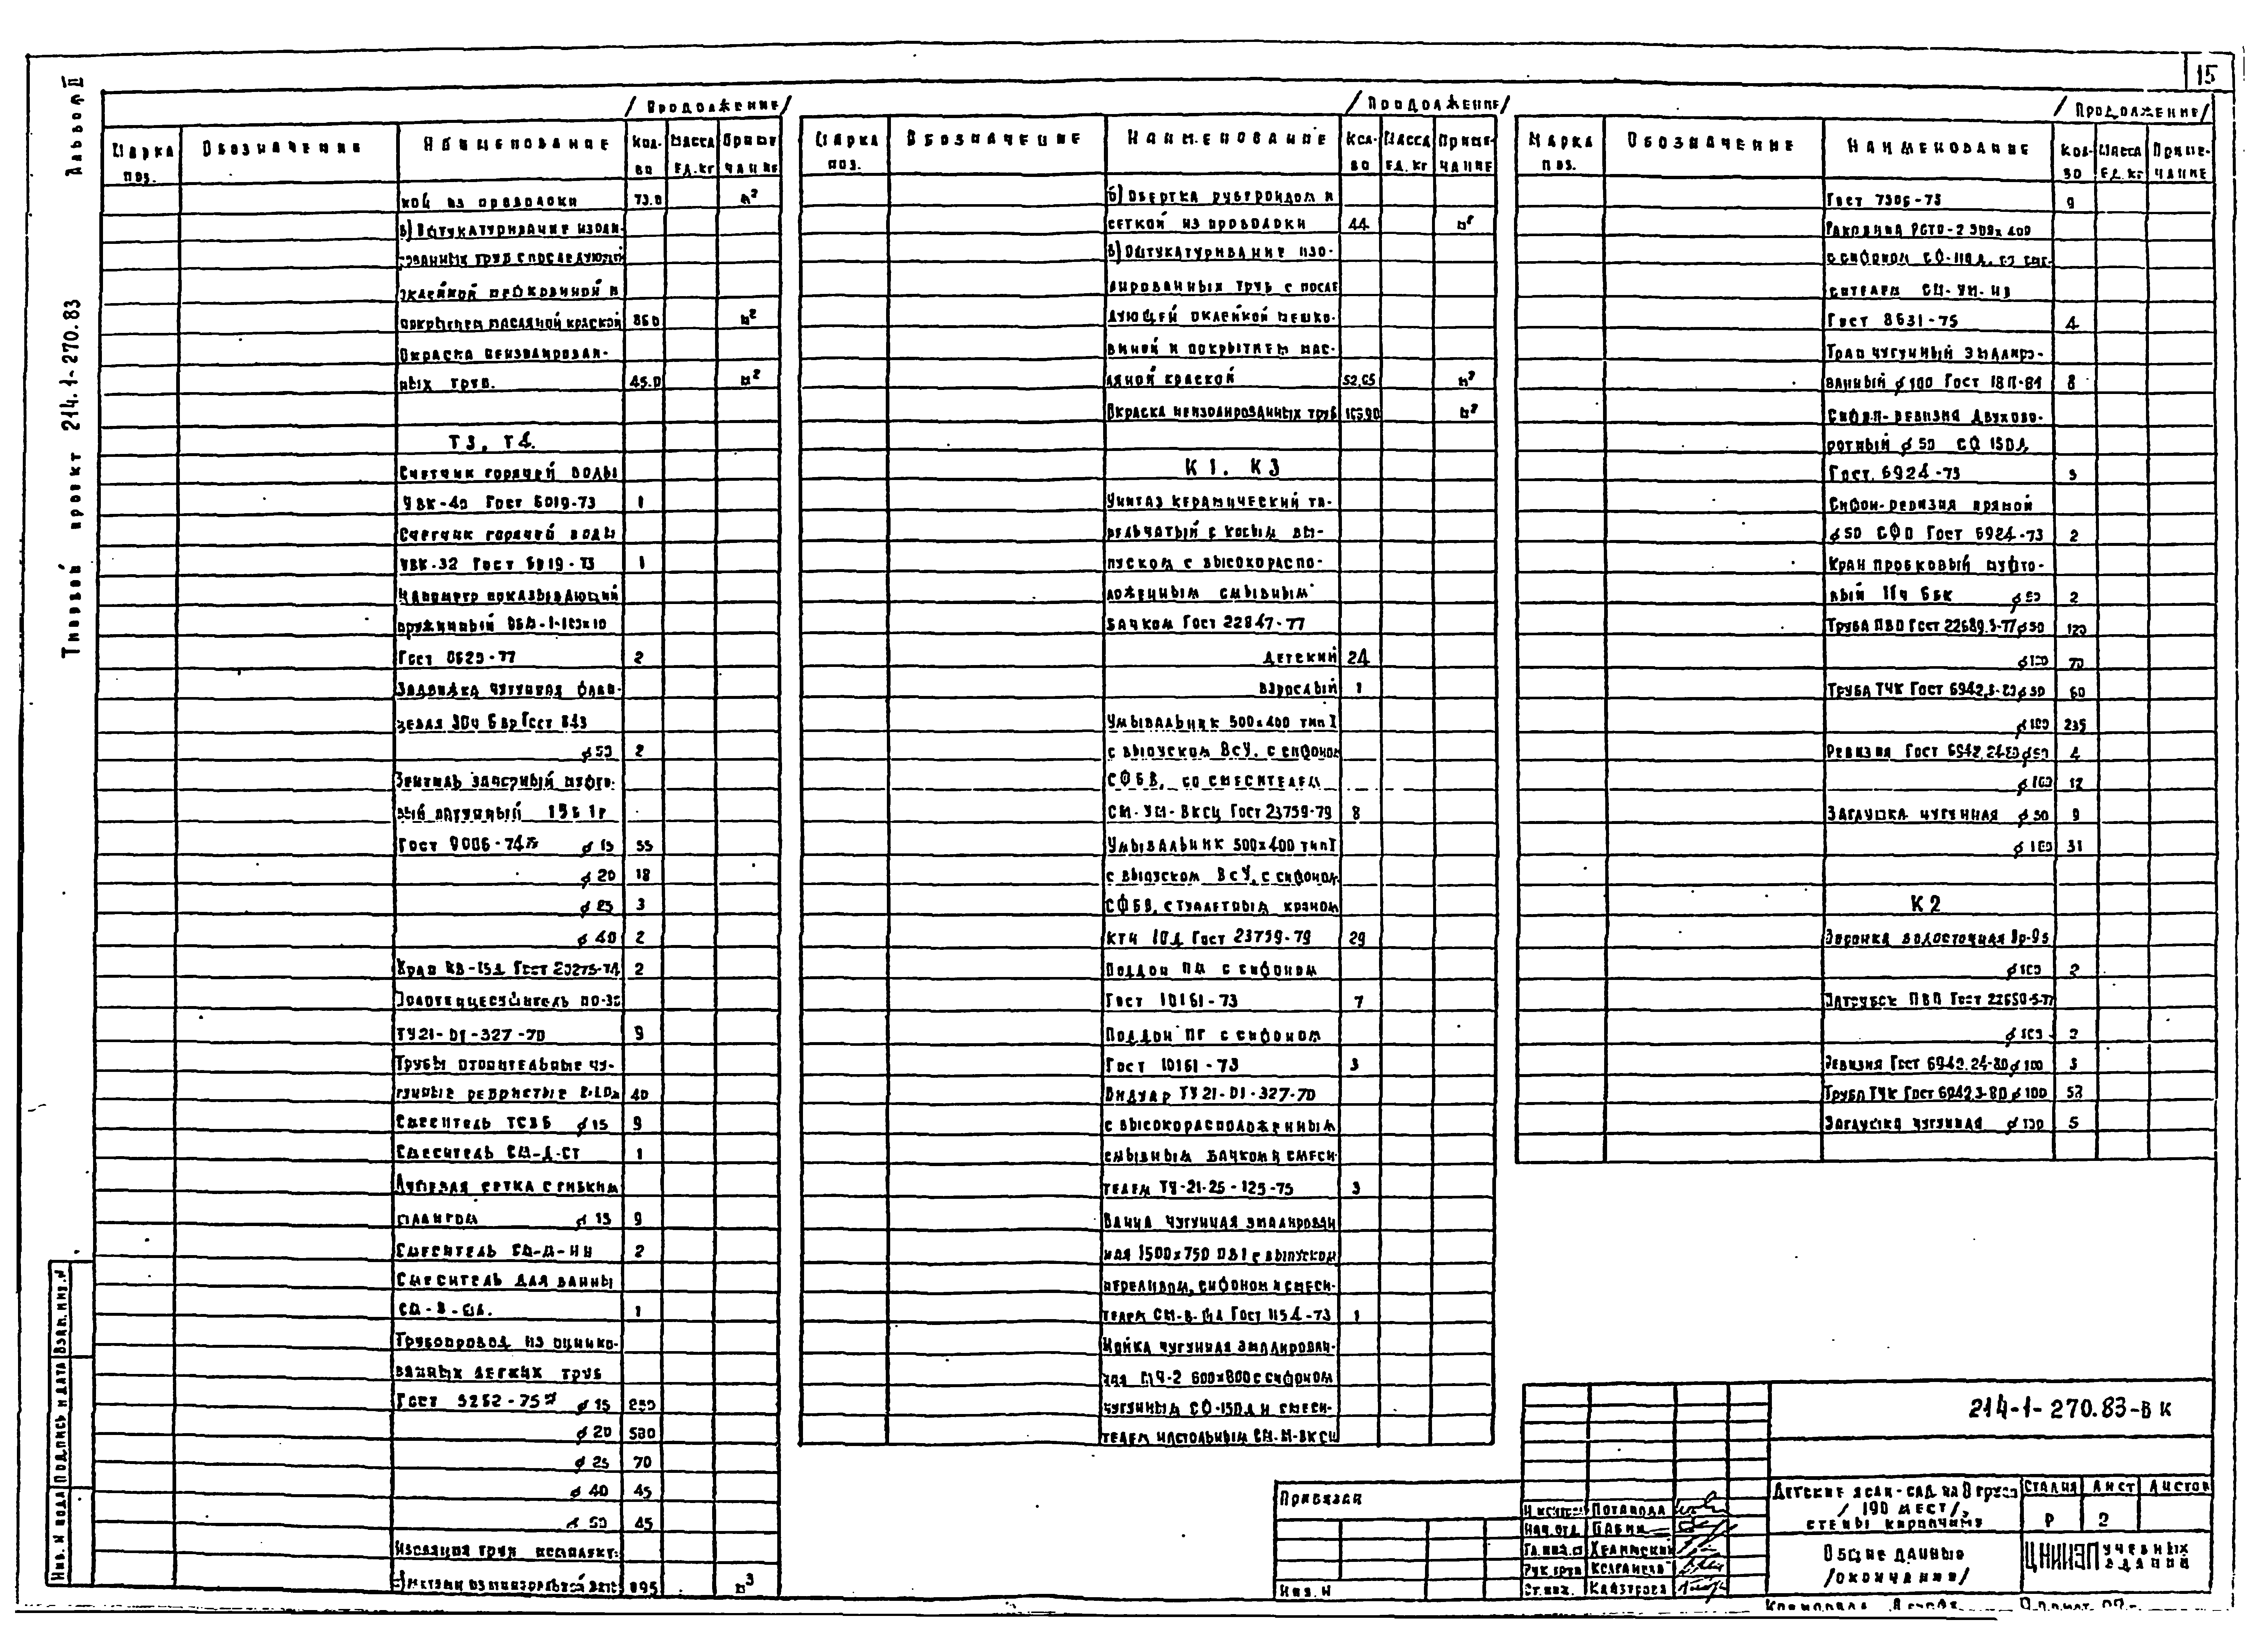 15
Альбом II
Типовой проект 214-1-270.83
/Продолжение/
Марка поз. Обозначение Наименование Кол-во Масса ед. кг Примечание
кой из проволоки 73.0 м²
в) Оштукатуривание изоли-
рованных труб с последующей
оклейкой мешковиной и
покрытием масляной краской 86.0 м²
Окраска неизолирован-
ных труб. 45.0 м²
Т3, Т4.
Счетчик горячей воды
УВК-40 Гост 6019-73 1
Счетчик горячей воды
УВК-32 Гост 6019-73 1
Манометр показывающий
пружинный
Гост 8625-77 2
Задвижка чугунная флан-
цевая 30ч 6 бр Гост
ø50 2
Вентиль запорный муфто-
вый латунный 15Б 1г
Гост 9086-74 ø15 55
ø20 18
ø25 3
ø40 2
Кран КВ-15Д Гост 20275-74 2
Полотенцесушитель ПО-30
ТУ21-01-327-70 9
Трубы отопительные чу-
гунные ребристые 40
Смеситель ø15 9
Смеситель СМ-Д-СТ 1
Душевая сетка с гибким
шлангом ø15 9
Смеситель СМ-М-НН 2
Смеситель для ванны
СМ-В-ШЛ. 1
Трубопровод из оцинко-
ванных легких труб
Гост 3262-75 ø15 250
ø20 580
ø25 70
ø40 45
ø50 45
Изоляция труб комплект:
м³
/Продолжение/
Марка поз. Обозначение Наименование Кол-во Масса ед. кг Примечание
б) Обертка рубероидом и
сеткой из проволоки 44 м²
в) Оштукатуривание изо-
лированных труб с после
дующей оклейкой мешко-
виной и покрытием мас-
ляной краской 52.65 м²
Окраска неизолированных труб м²
К1. К3
Унитаз керамический та-
рельчатый с косым вы-
пуском с высокораспо-
ложенным смывным
бачком Гост 22847-77
детский 24
взрослый 1
Умывальник 500х400 тип I
с выпуском ВсУ, с сифоном
СФБВ, со смесителем
СМ-УМ-ВКСЦ Гост 23759-79 8
Умывальник 500х400 тип I
с выпуском ВсУ, с сифоном
СФБВ, с туалетным краном
КТН 10Д Гост 23759-79 29
Поддон ПМ с сифоном
Гост 10161-73 7
Поддон ПГ с сифоном
Гост 10161-73 3
Видуар ТУ21-01-327-70
с высокорасположенным
смывным бачком и смеси-
телем ТУ-21-25-125-75 3
Ванна чугунная эмалирован
ная 1500х750 с выпуском
переливом, сифоном и смеси-
телем СМ-В-ШЛ Гост 1154-73 1
Мойка чугунная эмалирован-
ная МЧ-2 600х800 с сифоном
чугунным СФ-150Д и смеси-
телем настольным СМ-М-ВКСЦ
/Продолжение/
Марка поз. Обозначение Наименование Кол-во Масса ед. кг Примечание
Гост 7506-73 9
Раковина
с сифоном СФ-110Д, со сме-
сителем
Гост 8631-75 4
Трап чугунный эмалиро-
ванный ø100 Гост 1811-81 8
Сифон-ревизия двухобо-
ротный ø50 СФ 150Д
Гост. 6924-73 3
Сифон-ревизия прямой
ø50 СФП Гост 6924-73 2
Кран пробковый муфто-
вый 11ч 6бк ø50 2
Труба ПВП Гост 22689.3-77 ø50 120
ø100 70
Труба ТЧК Гост 6942.3-80 ø50 60
ø100 235
Ревизия Гост 6942.24-80 ø50 4
ø100 12
Заглушка чугунная ø50 9
ø100 31
К2
Воронка водосточная Вр-9Б
ø100 2
Патрубок ПВП
ø100 2
Ревизия Гост 6942.24-80 ø100 3
Труба ТЧК Гост 6942.3-80 ø100 53
Заглушка чугунная ø100 5
214-1-270.83-ВК
Детские ясли-сад на 8 групп
/190 мест/,
стены кирпичные
Стадия Лист Листов
Р 2
Общие данные
/окончание/
ЦНИИЭП учебных зданий
Привязан
Инв. №
Потапова
Нач. отд.
Рук. груп
Ст. инж.
Инв. № подл Подпись и дата Взам. инв. №
Копировал